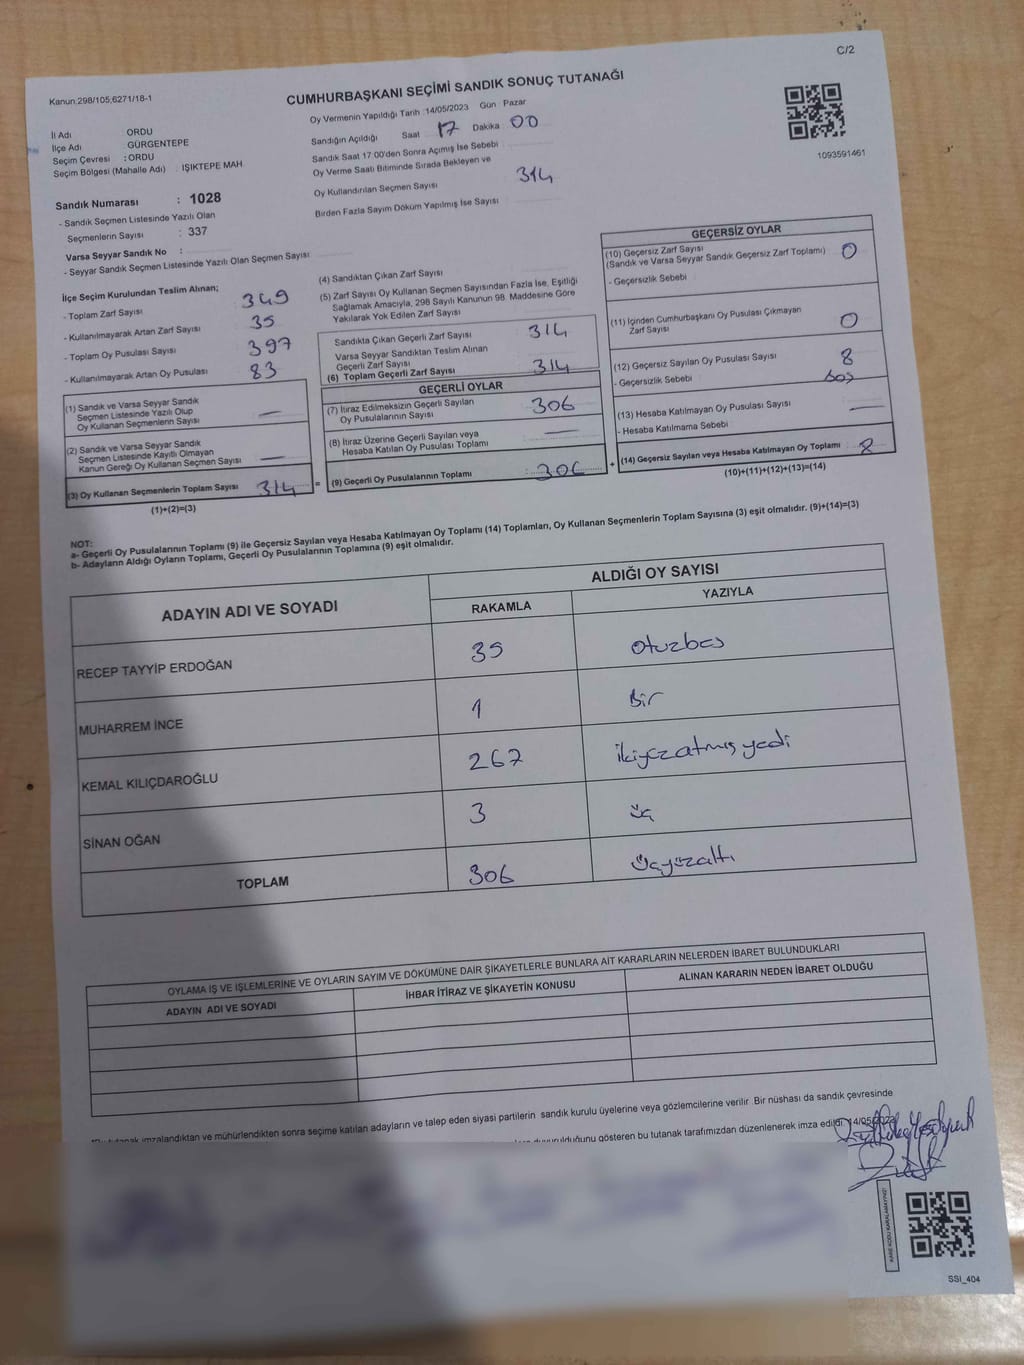 C/2
Kanun:298/105,6271/18-1
CUMHURBAŞKANI SEÇİMİ SANDIK SONUÇ TUTANAĞI
Oy Vermenin Yapıldığı Tarih :14/05/2023 Gün : Pazar
İl Adı ORDU
İlçe Adı GÜRGENTEPE
Seçim Çevresi : ORDU
Seçim Bölgesi (Mahalle Adı) : IŞIKTEPE MAH.
Sandığın Açıldığı Saat 17 Dakika 00
Sandık Saat 17:00'den Sonra Açımış İse Sebebi :
Oy Verme Saati Bitiminde Sırada Bekleyen ve
Oy Kullandırılan Seçmen Sayısı 314
Birden Fazla Sayım Döküm Yapılmış İse Sayısı
1093591461
Sandık Numarası : 1028
- Sandık Seçmen Listesinde Yazılı Olan
Seçmenlerin Sayısı : 337
Varsa Seyyar Sandık No :
- Seyyar Sandık Seçmen Listesinde Yazılı Olan Seçmen Sayısı
İlçe Seçim Kurulundan Teslim Alınan;
- Toplam Zarf Sayısı 349
- Kullanılmayarak Artan Zarf Sayısı 35
- Toplam Oy Pusulası Sayısı 397
- Kullanılmayarak Artan Oy Pusulası 83
(1) Sandık ve Varsa Seyyar Sandık
Seçmen Listesinde Yazılı Olup
Oy Kullanan Seçmenlerin Sayısı —
(2) Sandık ve Varsa Seyyar Sandık
Seçmen Listesinde Kayıtlı Olmayan
Kanun Gereği Oy Kullanan Seçmen Sayısı —
(3) Oy Kullanan Seçmenlerin Toplam Sayısı 314
(1)+(2)=(3)
=
(4) Sandıktan Çıkan Zarf Sayısı
(5) Zarf Sayısı Oy Kullanan Seçmen Sayısından Fazla İse, Eşitliği
Sağlamak Amacıyla, 298 Sayılı Kanunun 98. Maddesine Göre
Yakılarak Yok Edilen Zarf Sayısı
Sandıkta Çıkan Geçerli Zarf Sayısı 314
Varsa Seyyar Sandıktan Teslim Alınan
Geçerli Zarf Sayısı
(6) Toplam Geçerli Zarf Sayısı 314
GEÇERLİ OYLAR
(7) İtiraz Edilmeksizin Geçerli Sayılan
Oy Pusulalarının Sayısı 306
(8) İtiraz Üzerine Geçerli Sayılan veya
Hesaba Katılan Oy Pusulası Toplamı —
(9) Geçerli Oy Pusulalarının Toplamı : 306
+
GEÇERSİZ OYLAR
(10) Geçersiz Zarf Sayısı
(Sandık ve Varsa Seyyar Sandık Geçersiz Zarf Toplamı) 0
- Geçersizlik Sebebi :
(11) İçinden Cumhurbaşkanı Oy Pusulası Çıkmayan
Zarf Sayısı 0
(12) Geçersiz Sayılan Oy Pusulası Sayısı 8
- Geçersizlik Sebebi boş
(13) Hesaba Katılmayan Oy Pusulası Sayısı —
- Hesaba Katılmama Sebebi
(14) Geçersiz Sayılan veya Hesaba Katılmayan Oy Toplamı : 8
(10)+(11)+(12)+(13)=(14)
NOT:
a- Geçerli Oy Pusulalarının Toplamı (9) ile Geçersiz Sayılan veya Hesaba Katılmayan Oy Toplamı (14) Toplamları, Oy Kullanan Seçmenlerin Toplam Sayısına (3) eşit olmalıdır. (9)+(14)=(3)
b- Adayların Aldığı Oyların Toplamı, Geçerli Oy Pusulalarının Toplamına (9) eşit olmalıdır.
ADAYIN ADI VE SOYADI ALDIĞI OY SAYISI
RAKAMLA YAZIYLA
RECEP TAYYİP ERDOĞAN 35 otuzbeş
MUHARREM İNCE 1 Bir
KEMAL KILIÇDAROĞLU 267 ikiyüz atmış yedi
SİNAN OĞAN 3 üç
TOPLAM 306 üçyüzaltı
OYLAMA İŞ VE İŞLEMLERİNE VE OYLARIN SAYIM VE DÖKÜMÜNE DAİR ŞİKAYETLERLE BUNLARA AİT KARARLARIN NELERDEN İBARET BULUNDUKLARI
ADAYIN ADI VE SOYADI İHBAR İTİRAZ VE ŞİKAYETİN KONUSU ALINAN KARARIN NEDEN İBARET OLDUĞU
tutanak imzalandıktan ve mühürlendikten sonra seçime katılan adayların ve talep eden siyasi partilerin sandık kurulu üyelerine veya gözlemcilerine verilir. Bir nüshası da sandık çevresinde
duyurulduğunu gösteren bu tutanak tarafımızdan düzenlenerek imza edildi. 14/05/2023
KARE KODU KARALAMAYINIZ!
SSI_404